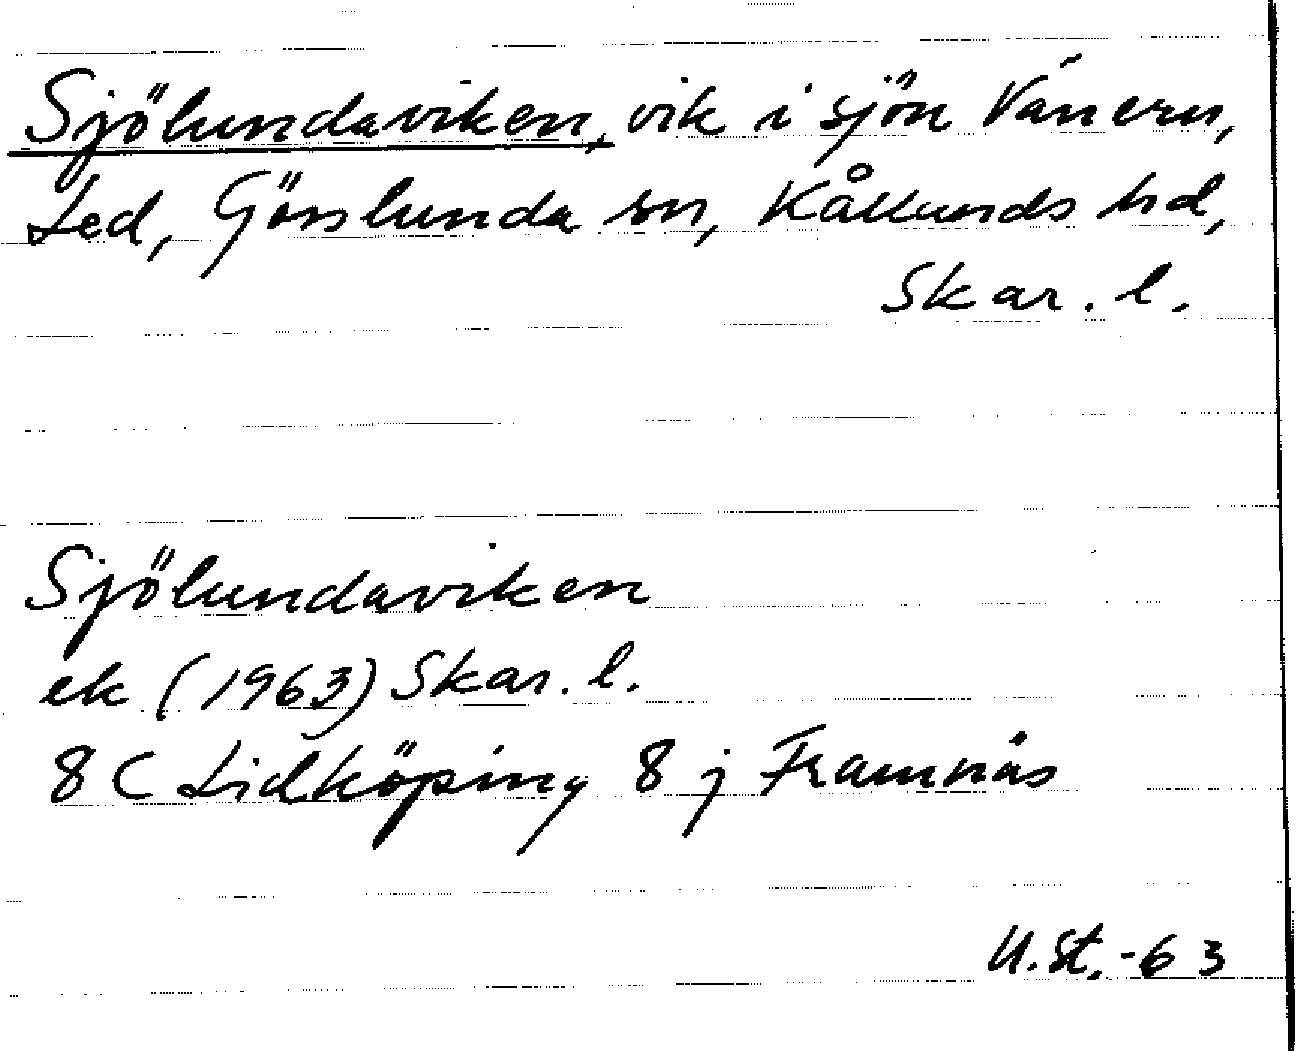 Sjölundaviken, vik i sjön Vänern,
Led, Görslunda sn, Kållands hd,
Skar. l.
Sjölundaviken
ek (1963) Skar. l.
8 C Lidköping 8 j Framnäs
U.St.-63